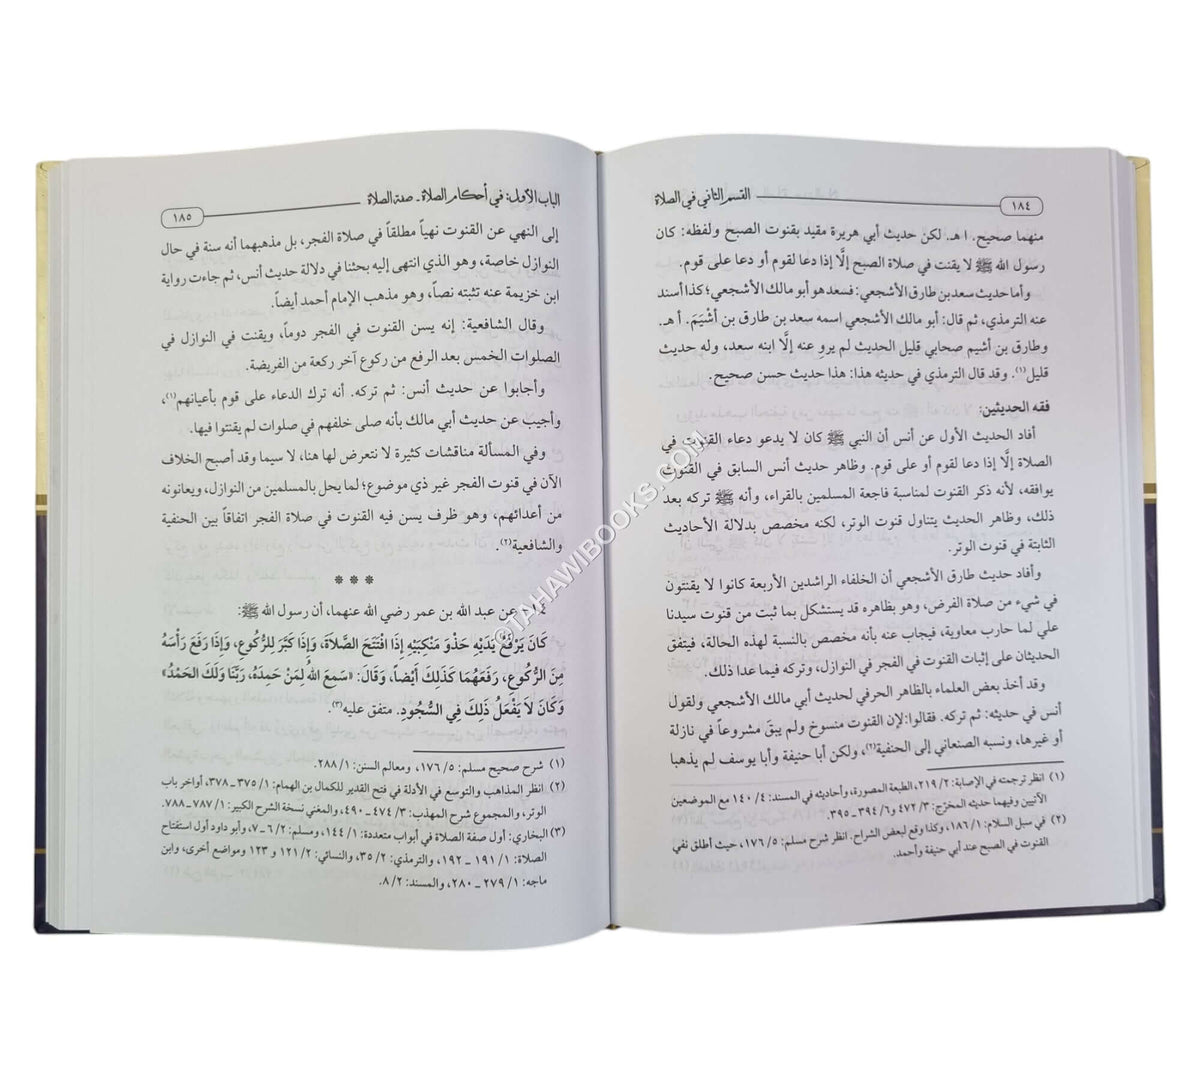 ١٨٤
القسم الثاني في الصلاة
منهما صحيح. ا هـ. لكن حديث أبي هريرة مقيد بقنوت الصبح ولفظه: كان
رسول الله ﷺ لا يقنت في صلاة الصبح إلَّا إذا دعا لقوم أو دعا على قوم.
وأما حديث سعد بن طارق الأشجعي: فسعد هو أبو مالك الأشجعي؛ كذا أسند
عنه الترمذي، ثم قال: أبو مالك الأشجعي اسمه سعد بن طارق بن أشْيَمَ. أ هـ.
وطارق بن أشيم صحابي قليل الحديث لم يروِ عنه إلَّا ابنه سعد، وله حديث
قليل(١). وقد قال الترمذي في حديثه هذا: هذا حديث حسن صحيح.
فقه الحديثين:
أفاد الحديث الأول عن أنس أن النبي ﷺ كان لا يدعو دعاء القنوت في
الصلاة إلَّا إذا دعا لقوم أو على قوم. وظاهر حديث أنس السابق في القنوت
يوافقه، لأنه ذكر القنوت لمناسبة فاجعة المسلمين بالقراء، وأنه ﷺ تركه بعد
ذلك، وظاهر الحديث يتناول قنوت الوتر، لكنه مخصص بدلالة الأحاديث
الثابتة في قنوت الوتر.
وأفاد حديث طارق الأشجعي أن الخلفاء الراشدين الأربعة كانوا لا يقنتون
في شيء من صلاة الفرض، وهو بظاهره قد يستشكل بما ثبت من قنوت سيدنا
علي لما حارب معاوية، فيجاب عنه بأنه مخصص بالنسبة لهذه الحالة، فيتفق
الحديثان على إثبات القنوت في الفجر في النوازل، وتركه فيما عدا ذلك.
وقد أخذ بعض العلماء بالظاهر الحرفي لحديث أبي مالك الأشجعي ولقول
أنس في حديثه: ثم تركه. فقالوا: لإن القنوت منسوخ ولم يبقَ مشروعاً في نازلة
أو غيرها، ونسبه الصنعاني إلى الحنفية(٢)، ولكن أبا حنيفة وأبا يوسف لم يذهبا
(١) انظر ترجمته في الإصابة: ٢/ ٢١٩، الطبعة المصورة، وأحاديثه في المسند: ٤/ ١٤٠ مع الموضعين
الآتيين وفيهما حديثه المخرّج: ٣/ ٤٧٢ و٦/ ٣٩٤ ـ ٣٩٥.
(٢) في سبل السلام: ١/ ١٨٦، وكذا وقع لبعض الشراح. انظر شرح مسلم: ٥/ ١٧٦، حيث أطلق نفي
القنوت في الصبح عند أبي حنيفة وأحمد.
الباب الأول: في أحكام الصلاة ـ صفة الصلاة
١٨٥
إلى النهي عن القنوت نهياً مطلقاً في صلاة الفجر، بل مذهبهما أنه سنة في حال
النوازل خاصة، وهو الذي انتهى إليه بحثنا في دلالة حديث أنس، ثم جاءت رواية
ابن خزيمة عنه تثبته نصاً، وهو مذهب الإمام أحمد أيضاً.
وقال الشافعية: إنه يسن القنوت في الفجر دوماً، ويقنت في النوازل في
الصلوات الخمس بعد الرفع من ركوع آخر ركعة من الفريضة.
وأجابوا عن حديث أنس: ثم تركه. أنه ترك الدعاء على قوم بأعيانهم(١)،
وأجيب عن حديث أبي مالك بأنه صلى خلفهم في صلوات لم يقنتوا فيها.
وفي المسألة مناقشات كثيرة لا نتعرض لها هنا، لا سيما وقد أصبح الخلاف
الآن في قنوت الفجر غير ذي موضوع؛ لما يحل بالمسلمين من النوازل، ويعانونه
من أعدائهم، وهو ظرف يسن فيه القنوت في صلاة الفجر اتفاقاً بين الحنفية
والشافعية(٢).
* * *
عن عبد الله بن عمر رضي الله عنهما، أن رسول الله ﷺ:
كَانَ يَرْفَعُ يَدَيْهِ حَذْوَ مَنْكِبَيْهِ إِذَا افْتَتَحَ الصَّلاَةَ، وَإِذَا كَبَّرَ لِلرُّكُوعِ، وَإِذَا رَفَعَ رَأْسَهُ
مِنَ الرُّكُوعِ، رَفَعَهُمَا كَذَلِكَ أَيْضاً، وَقَالَ: «سَمِعَ اللهُ لِمَنْ حَمِدَهُ، رَبَّنَا وَلَكَ الحَمْدُ»
وَكَانَ لاَ يَفْعَلُ ذَلِكَ فِي السُّجُودِ. متفق عليه(٣).
(١) شرح صحيح مسلم: ٥/ ١٧٦، ومعالم السنن: ١/ ٢٨٨.
(٢) انظر المذاهب والتوسع في الأدلة في فتح القدير للكمال بن الهمام: ١/ ٣٧٥ ـ ٣٧٨، أواخر باب
الوتر، والمجموع شرح المهذب: ٣/ ٤٧٤ ـ ٤٩٠، والمغني نسخة الشرح الكبير: ١/ ٧٨٧ ـ ٧٨٨.
(٣) البخاري: أول صفة الصلاة في أبواب متعددة: ١/ ١٤٤، ومسلم: ٢/ ٦ ـ ٧، وأبو داود أول استفتاح
الصلاة: ١/ ١٩١ ـ ١٩٢، والترمذي: ٢/ ٣٥، والنسائي: ٢/ ١٢١ و ١٢٣ ومواضع أخرى، وابن
ماجه: ١/ ٢٧٩ ـ ٢٨٠، والمسند: ٢/ ٨.
©TAHAWIBOOKS.COM